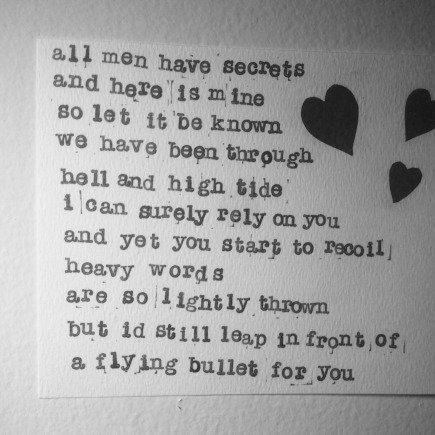 all men have secrets
and here is mine
so let it be known
we have been through
hell and high tide
i can surely rely on you
and yet you start to recoil
heavy words
are so lightly thrown
but id still leap in front of
a flying bullet for you